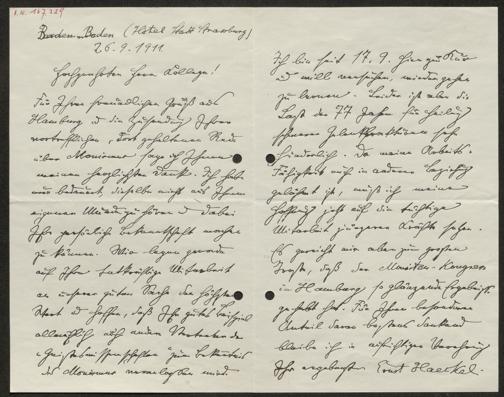 I.N. 167.229
Baden-Baden (Hotel Stadt Strassburg)
26.9.1911
Hochgeehrter Herr College!
Für Ihren freundlichen Gruß aus
Hamburg u die Zusendung Ihrer
vortrefflichen, dort gehaltenen Rede
über Monismus sage ich Ihnen
meinen herzlichsten Dank. Ich habe
nur bedauert, dieselbe nicht aus Ihrem
eigenen Munde zu hören u dabei
Ihre persönliche Bekanntschaft machen
zu können. Wir legen gerade
auf Ihre tatkräftige Mitarbeit
an unserer guten Sache den höchsten
Wert u hoffen, daß Ihr gutes Beispiel
allmählich auch andere Vertreter der
„Geisteswissenschaften" zum Bekenntnis
des Monismus veranlassen wird.
Ich bin seit 17.9. hier zur Kur
u will versuchen, wieder gehen
zu lernen. Leider ist aber die
Last der 77 Jahre für Heilung
schwerer Gelenk sehr
hinderlich. Da meine Arbeits-
Fähigkeit auch in anderer Beziehung
gelähmt ist, muß ich meine
Hoffnung jetzt auf die tüchtige
Mitarbeit jüngerer Kräfte setzen.
Es gereicht mir aber zum großen
Troste, daß der Monisten-Kongress
in Hamburg so glänzende Ergebnisse
gehabt hat. Für Ihren besonderen
Anteil daran bestens dankend
bleibe ich in aufrichtiger Verehrung
Ihr ergebenster Ernst Haeckel.